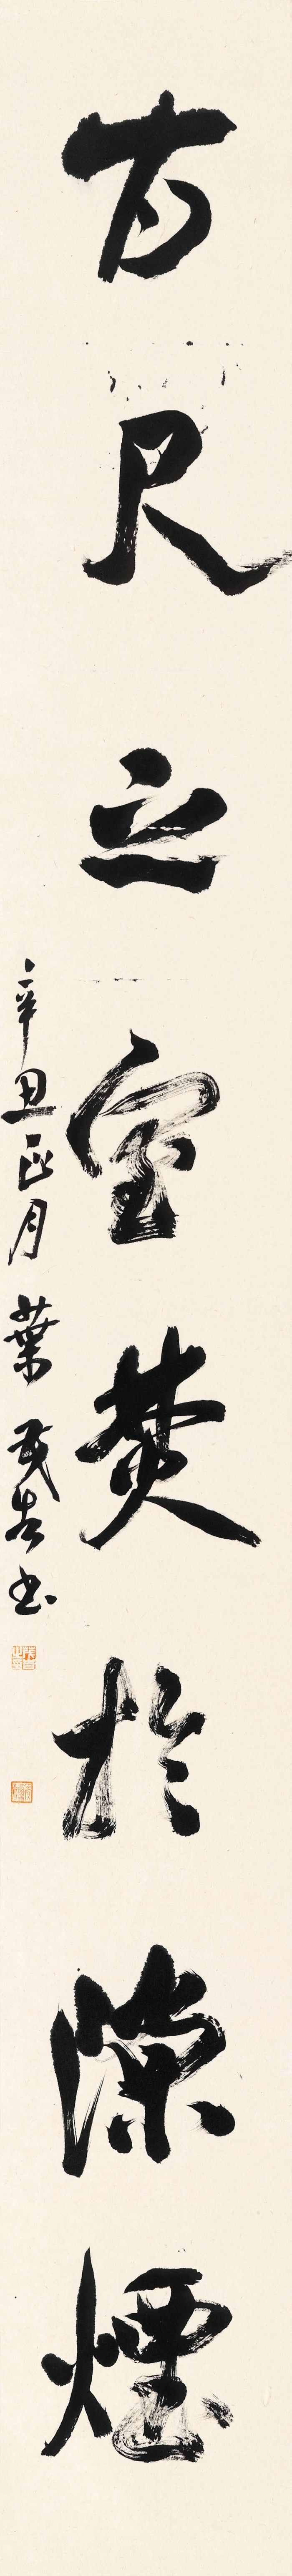 百尺之室焚於隙煙
辛丑正月葉武書